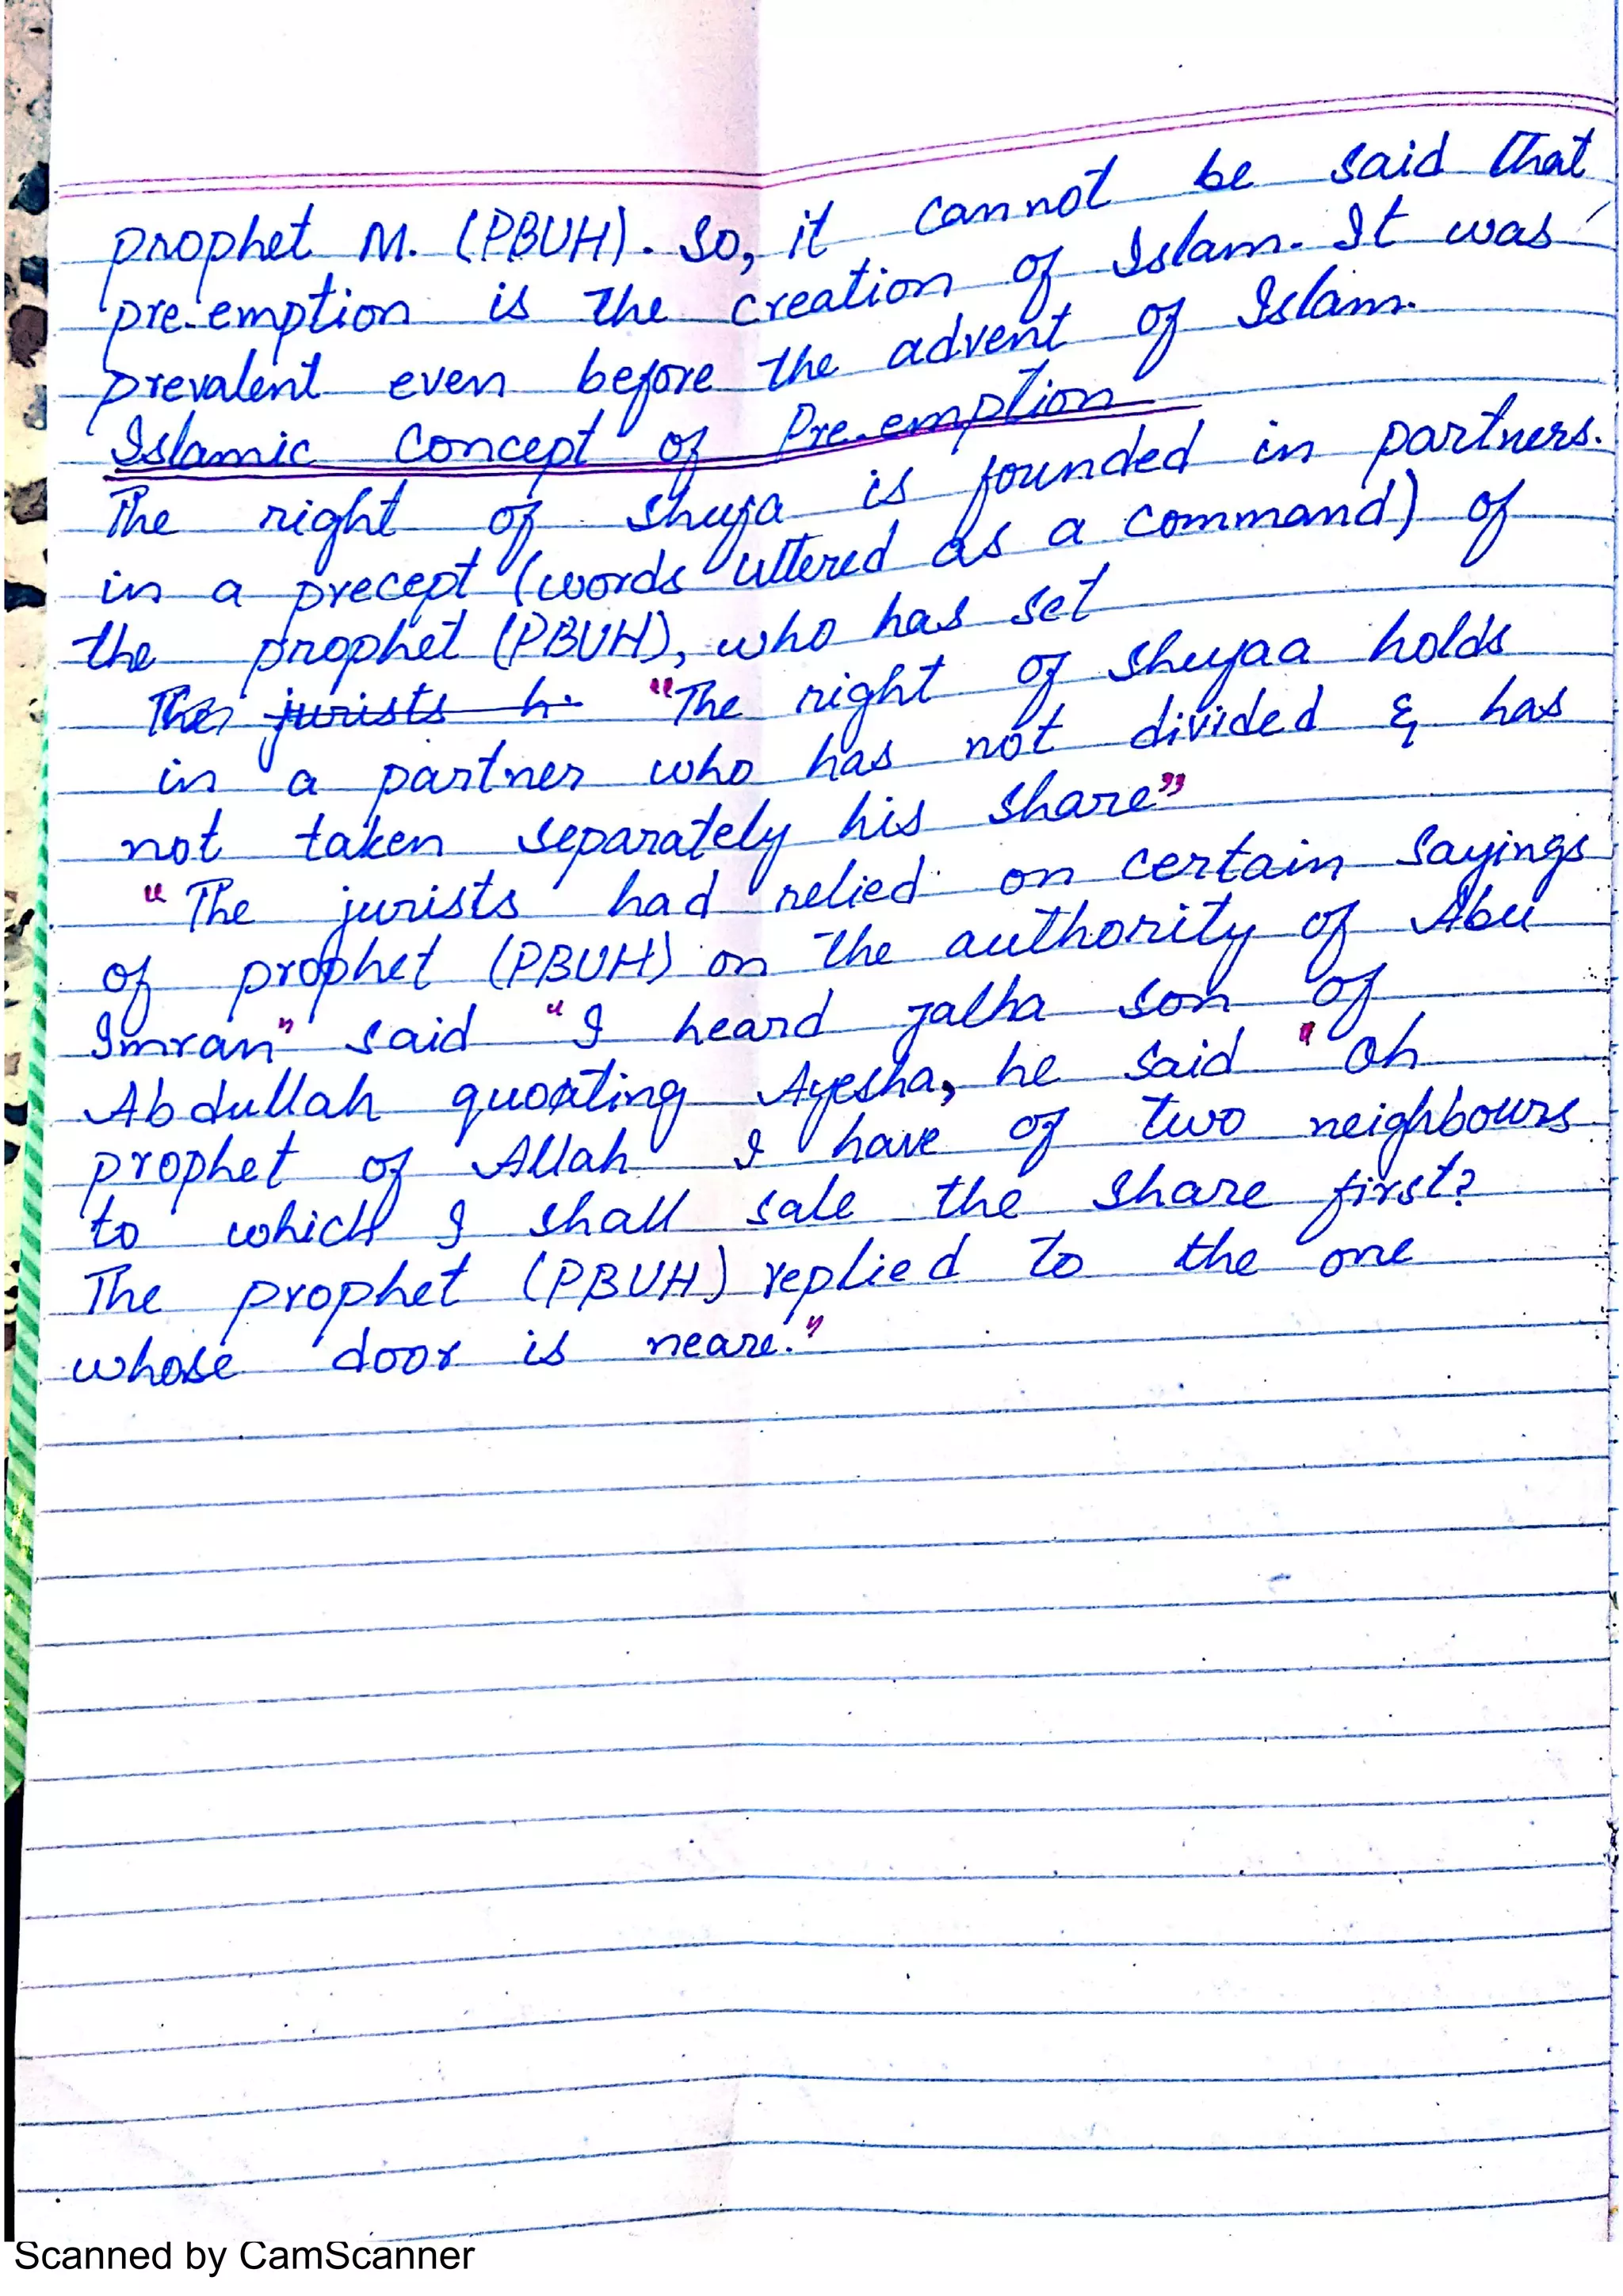 prophet M. (PBUH). So, it cannot be said that
pre-emption is the creation of Islam. It was
prevalent even before the advent of Islam.
Islamic Concept of Pre-emption
The right of Shufa is founded in partners.
in a precept (words uttered as a command) of
the prophet (PBUH), who has set
The jurists h. "The right of shufaa holds
in a partner who has not divided & has
not taken separately his share"
"The jurists had relied on certain sayings
of prophet (PBUH) on the authority of Abu
Imran" said "I heard Talha son of
Abdullah quoating Ayesha, he said "Oh
prophet of Allah I have of two neighbours
to which I shall sale the share first?
The prophet (PBUH) replied to the one
whose door is neare."
Scanned by CamScanner